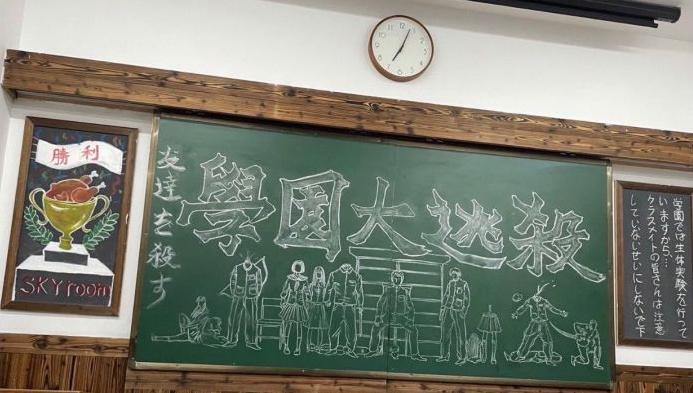 勝利
SKYroom
友達を殺す
學園大逃殺
学園では生体実験を行って
いますから…
クラスメイトの皆さんは注意
していないせいにしないで下
12